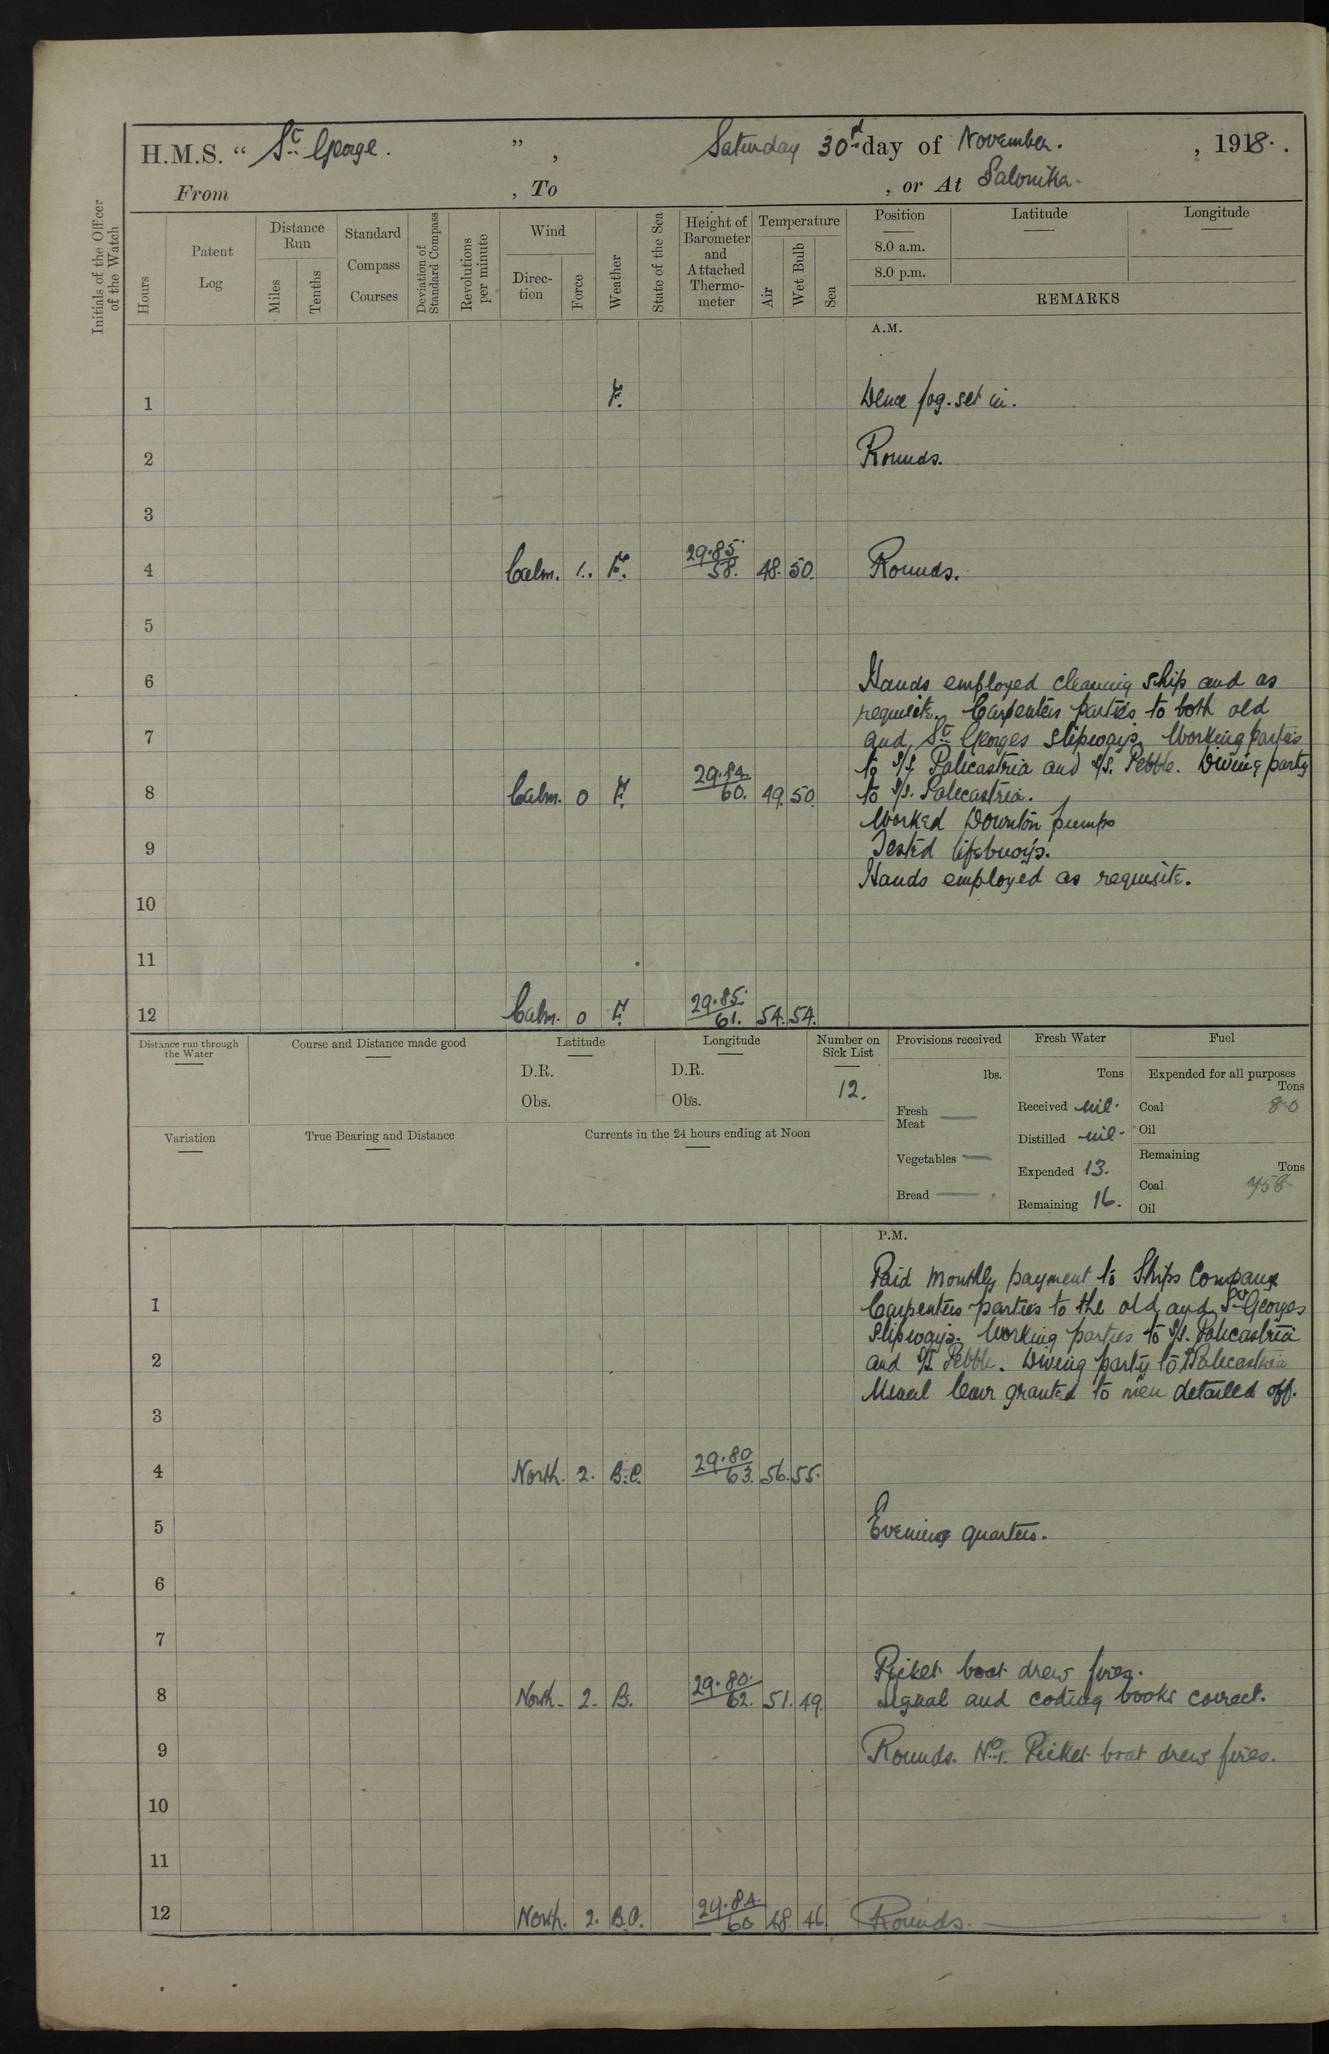 H.M.S. “ St. George. ” , Saturday 30th day of November. , 1918.
From , To , or At Salonika.
Initials of the Officer of the Watch
Hours
Patent Log
Distance Run
Miles
Tenths
Standard Compass Courses
Deviation of Standard Compass
Revolutions per minute
Wind
Direction
Force
Weather
State of the Sea
Height of Barometer and Attached Thermometer
Temperature
Air
Wet Bulb
Sea
Position
Latitude
Longitude
8.0 a.m.
8.0 p.m.
REMARKS
A.M.
1 F. Dence fog. set in.
2 Rounds.
3
4 Calm. 1. F. 29.85 58. 48. 50. Rounds.
5
6 Hands employed cleaning ship and as
requisite. Carpenters parties to both old
7 and St. Georges slipways. Working parties
to S/S Palicastria and S/S. Pebble. Diving party
8 Calm. 0 F. 29.84. 60. 49. 50. to S/S. Palicastria.
Worked Downton pumps
9 Tested lifebuoys.
Hands employed as requisite.
10
11
12 Calm. 0 F. 29.85. 61. 54. 54.
Distance run through the Water
Course and Distance made good
Latitude
D.R.
Obs.
Longitude
D.R.
Obs.
Number on Sick List
12.
Provisions received
lbs.
Fresh Meat
Vegetables
Bread
Fresh Water
Tons
Received nil.
Distilled nil.
Expended 13.
Remaining 16.
Fuel
Expended for all purposes
Tons
Coal 80
Oil
Remaining
Tons
Coal 758
Oil
Variation
True Bearing and Distance
Currents in the 24 hours ending at Noon
P.M.
Paid monthly payment to Ships Company
1 Carpenters parties to the old and St. Georges
slipways. Working parties to S/S. Palicastria
2 and S/S. Pebble. Diving party to Palicastria
Usual leave granted to men detailed off.
3
4 North. 2. B.C. 29.80 63. 56. 55.
5 Evening quarters.
6
7
Picket boat drew fires.
8 North. 2. B. 29.80. 62. 51. 49. Signal and coding books correct.
9 Rounds. No. 1. Picket boat drew fires.
10
11
12 North. 2. B.C. 29.84. 60 48. 46 Rounds.